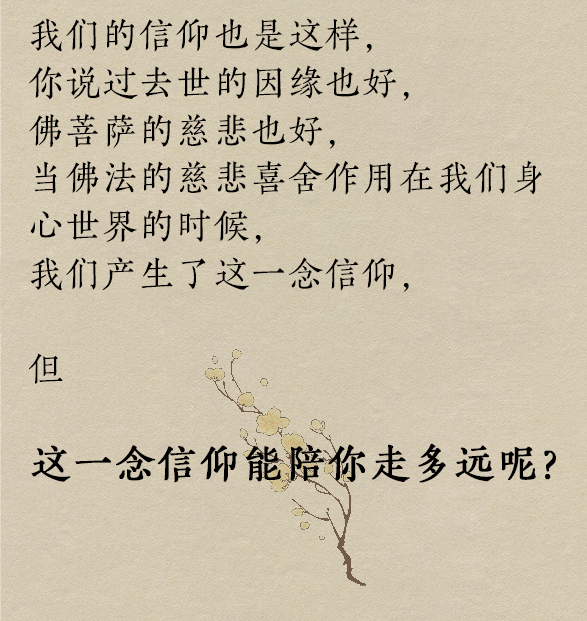 我们的信仰也是这样，
你说过去世的因缘也好，
佛菩萨的慈悲也好，
当佛法的慈悲喜舍作用在我们身
心世界的时候，
我们产生了这一念信仰，
但
这一念信仰能陪你走多远呢？